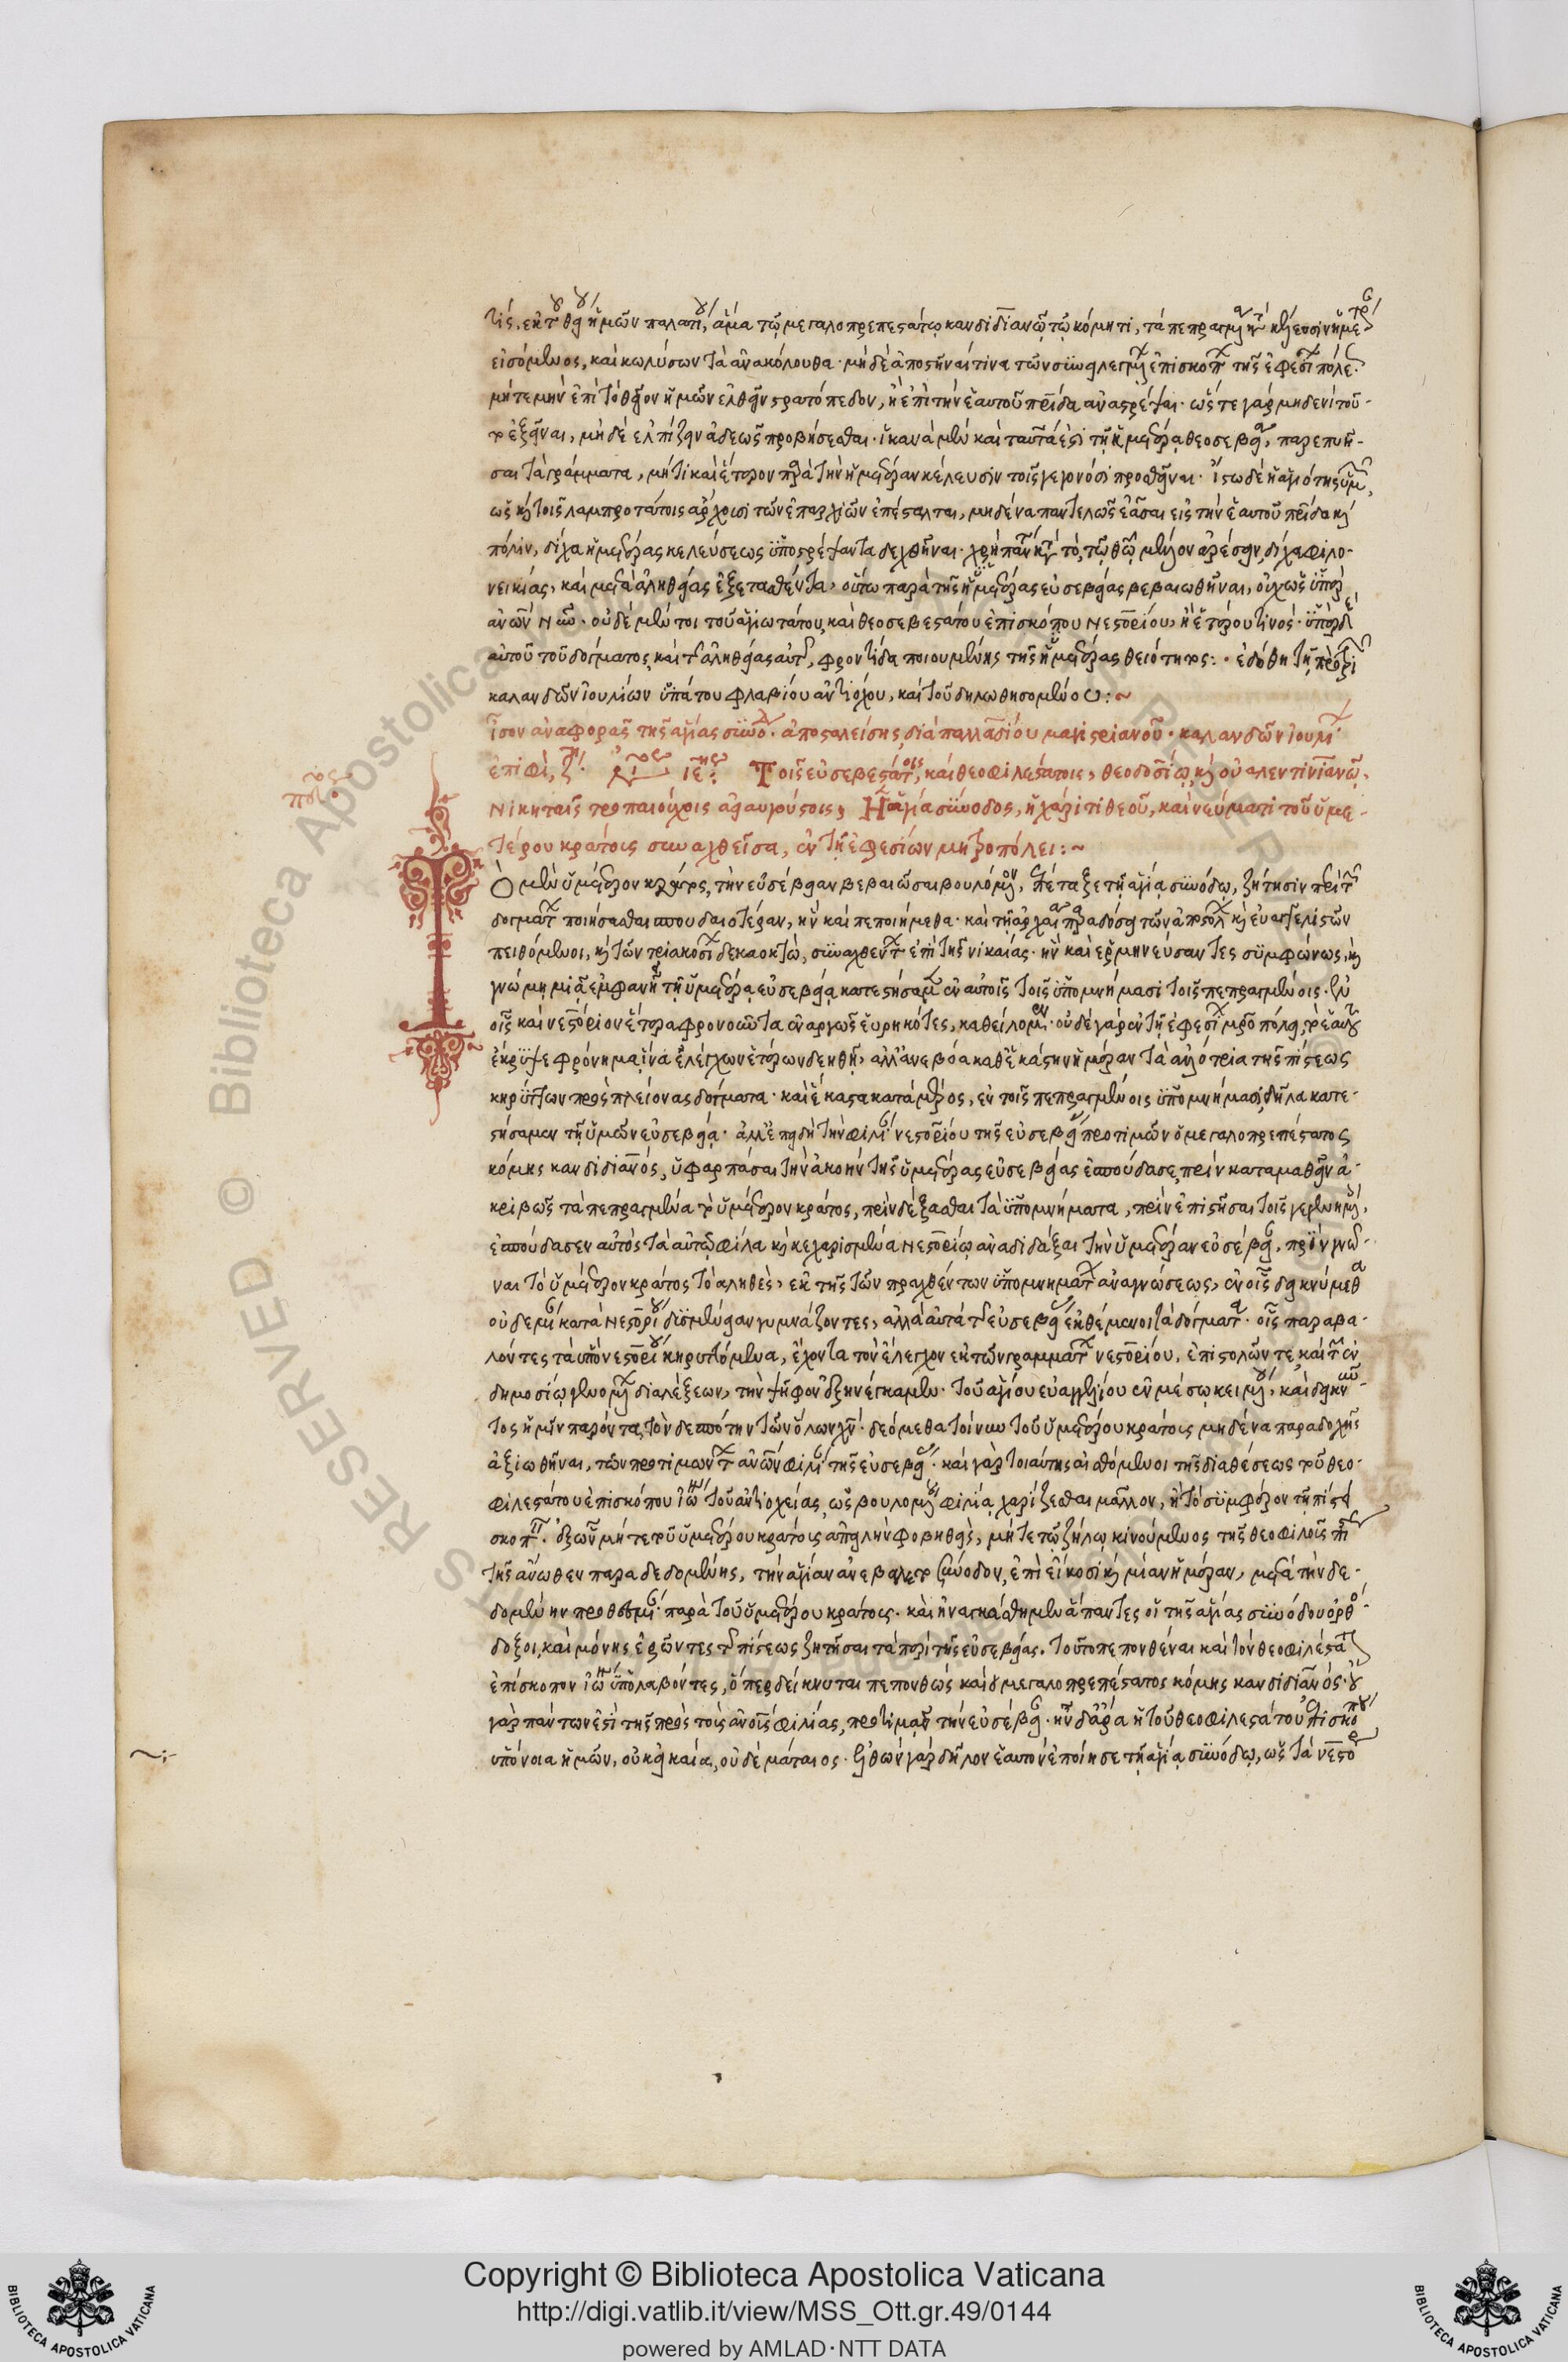 τις, ἐκ τοῦ θείου ἡμῶν παλατίου, ἅμα τῷ μεγαλοπρεπεστάτῳ κανδιδιανῷ τῷ κόμητι, τὰ πεπραγμένα κατὰ κέλευσιν ἡμετέραν
εἰσόμενος, καὶ κωλύσων τὰ ἀνακόλουθα· μὴ δὲ ἀποστῆναί τινα τῶν συνειλεγμένων ἐπισκόπων τῆς ἐφεσίων πόλεως·
μήτε μὴν ἐπὶ τὸ θεῖον ἡμῶν ἐλθεῖν στρατόπεδον, ἢ ἐπὶ τὴν ἑαυτοῦ πατρίδα ἀναστρέψαι· ὥστε γὰρ μηδενὶ τοῦ-
το ἐξεῖναι, μὴ δὲ ἐλπίζειν ἀδεῶς προβήσεσθαι· ἱκανὰ μὲν καὶ ταῦτά ἐστι τῇ ἡμετέρᾳ θεοσεβείᾳ,
σαι τὰ γράμματα, μή τι καὶ ἕτερον παρὰ τὴν ἡμετέραν κέλευσιν τοῖς γεγονόσι προσθεῖναι· ἴστω δὲ ἡ ἁγιότης ὑμῶν,
ὡς καὶ τοῖς λαμπροτάτοις ἄρχουσι τῶν ἐπαρχιῶν ἐπέσταλται, μηδένα παντελῶς ἐᾶσαι εἰς τὴν ἑαυτοῦ πατρίδα καὶ
πόλιν, δίχα ἡμετέρας κελεύσεως ὑποστρέψαντα δεχθῆναι· χρὴ πάντα κατὰ τὸ, τῷ θεῷ μέλλον ἀρέσειν, δίχα φιλο-
νεικίας, καὶ μετὰ ἀληθείας ἐξετασθέντα, οὕτω παρὰ τῆς ἡμετέρας εὐσεβείας βεβαιωθῆναι, οὐχ ὡς ὑπὲρ
ἀνῶν νῦν· οὐδὲ μέντοι τοῦ ἁγιωτάτου, καὶ θεοσεβεστάτου ἐπισκόπου νεστορίου, ἢ ἑτέρου τινός· ὑπὲρ δὲ
αὐτοῦ τοῦ δόγματος, καὶ τῆς ἀληθείας αὐτῆς, φροντίδα ποιουμένης τῆς ἡμετέρας θειότητος:· ἐδόθη τῇ πρὸ τριῶν
καλανδῶν ἰουλίων ὑπάτου φλαβίου ἀντιόχου, καὶ τοῦ δηλωθησομένου:~
ἴσον ἀναφορᾶς τῆς ἁγίας συνόδου· ἀποσταλείσης, διὰ παλλαδίου μαγιστριανοῦ· καλανδῶν ἰουλίων·
ἐπιφὶ, ζ· ιε: Τοῖς εὐσεβεστάτοις, καὶ θεοφιλεστάτοις, θεοδοσίῳ, καὶ οὐαλεντινιανῷ,
Νικηταῖς τροπαιούχοις ἀειαυγούστοις, Ἡ ἁγία σύνοδος, ἡ χάριτι θεοῦ, καὶ νεύματι τοῦ ὑμε-
τέρου κράτους συναχθεῖσα, ἐν τῇ ἐφεσίων μητροπόλει:~
Ὁ μὲν ὑμέτερον κράτος, τὴν εὐσέβειαν βεβαιῶσαι βουλόμενον, προσέταξε τῇ ἁγίᾳ συνόδῳ, ζήτησιν περὶ τῶν
δογμάτων ποιήσασθαι σπουδαιοτέραν, ἣν καὶ πεποιήμεθα· καὶ τῇ ἀρχαίᾳ παραδόσει τῶν ἀποστόλων καὶ εὐαγγελιστῶν
πειθόμενοι, καὶ τῶν τριακοσίων δεκαοκτὼ, συναχθέντων ἐπὶ τῆς νικαίας· ἣν καὶ ἑρμηνεύσαντες συμφώνως, καὶ
γνώμῃ μιᾷ ἐμφανῆ τῇ ὑμετέρᾳ εὐσεβείᾳ κατεστήσαμεν ἐν αὐτοῖς τοῖς ὑπομνήμασι τοῖς πεπραγμένοις· ἐν
οἷς καὶ νεστόριον ἕτερα φρονοῦντα ἐναργῶς εὑρηκότες, καθείλομεν· οὐδὲ γὰρ ἐν τῇ ἐφεσίων μητροπόλει, τὸ ἑαυτοῦ
ἐκρυψε φρόνημα, ἵνα ἐλέγχων ἑτέρων δεηθῇ, ἀλλ' ἀνεβόα καθ' ἑκάστην ἡμέραν τὰ ἀλλότρια τῆς πίστεως
κηρύττων πρὸς πλείονας δόγματα· καὶ ἕκαστα κατὰ μέρος, ἐν τοῖς πεπραγμένοις ὑπομνήμασι, δῆλα κατε-
στήσαμεν τῇ ὑμῶν εὐσεβείᾳ· ἀλλ' ἐπειδὴ τὴν φιλίαν νεστορίου τῆς εὐσεβείας προτιμῶν ὁ μεγαλοπρεπέστατος
κόμης κανδιδιανός, ὑφαρπάσαι τὴν ἀκοὴν τῆς ὑμετέρας εὐσεβείας ἐσπούδασε, πρὶν καταμαθεῖν ἀ-
κριβῶς τὰ πεπραγμένα τὸ ὑμέτερον κράτος, πρὶν δέξασθαι τὰ ὑπομνήματα, πρὶν ἐπιστῆσαι τοῖς γεγενημένοις,
ἐσπούδασεν αὐτὸς τὰ αὐτῷ φίλα καὶ κεχαρισμένα νεστορίῳ ἀναδιδάξαι τὴν ὑμετέραν εὐσέβειαν, πρὶν γνῶ-
ναι τὸ ὑμέτερον κράτος τὸ ἀληθὲς, ἐκ τῆς τῶν πραχθέντων ὑπομνημάτων ἀναγνώσεως, ἐν οἷς δεικνύμεθα
οὐδεμίαν κατὰ νεστορίου δυσμένειαν γυμνάζοντες, ἀλλὰ αὐτὰ τῆς εὐσεβείας ἐκθέμενοι τὰ δόγματα· οἷς παραβα-
λόντες τὰ ὑπὸ νεστορίου κηρυττόμενα, ἔχοντα τὸν ἔλεγχον ἐκ τῶν γραμμάτων νεστορίου, ἐπιστολῶν τε, καὶ τῶν ἐν
δημοσίῳ γενομένων διαλέξεων, τὴν ψῆφον ἐξηνέγκαμεν· τοῦ ἁγίου εὐαγγελίου ἐν μέσῳ κειμένου, καὶ δεικνύν-
τος ἡμῖν παρόντα, τὸν δεσπότην τῶν ὅλων χν· δεόμεθα τοίνυν τοῦ ὑμετέρου κράτους μηδένα παραδοχῆς
ἀξιωθῆναι, τῶν προτιμώντων ἀνῶν φιλίαν τῆς εὐσεβείας· καὶ γὰρ τοιαύτης αἰσθόμενοι τῆς διαθέσεως τοῦ θεο-
φιλεστάτου ἐπισκόπου ἰωάννου τοῦ ἀντιοχείας, ὡς βουλομένου φιλίᾳ χαρίζεσθαι μᾶλλον, ἢ τὸ συμφέρον τῇ πίστει
σκοπεῖν· ἐξ ὧν μήτε τοῦ ὑμετέρου κράτους ἀπειλὴν φοβηθεὶς, μήτε τῷ ζήλῳ κινούμενος τῆς θεοφιλοῦς πίστεως
τῆς ἄνωθεν παραδεδομένης, τὴν ἁγίαν ἀνεβάλετο σύνοδον, ἐπὶ εἴκοσι καὶ μίαν ἡμέραν, μετὰ τὴν δε-
δομένην προθεσμίαν παρὰ τοῦ ὑμετέρου κράτους· καὶ ἠναγκάσθημεν ἅπαντες οἱ τῆς ἁγίας συνόδου ὀρθό-
δοξοι, καὶ μόνης ἐρῶντες τῆς πίστεως ζητῆσαι τὰ περὶ τῆς εὐσεβείας. τοῦτο πεπονθέναι καὶ τὸν θεοφιλέστατον
ἐπίσκοπον ἰωάννην ὑπολαβόντες, ὅπερ δείκνυται πεπονθὼς καὶ ὁ μεγαλοπρεπέστατος κόμης κανδιδιανός· οὐ
γὰρ πάντων ἐστὶ τῆς πρὸς τοὺς ἀνοὺς φιλίας, προτιμᾶν τὴν εὐσέβειαν· ἦν δ' ἄρα ἡ τοῦ θεοφιλεστάτου ἐπισκόπου
ὑπόνοια ἡμῶν, οὐκ εἰκαία, οὐδὲ μάταιος· ἐλθὼν γὰρ δῆλον ἑαυτὸν ἐποίησε τῇ ἁγίᾳ συνόδῳ, ὡς τὰ νεστορίου
Copyright © Biblioteca Apostolica Vaticana
http://digi.vatlib.it/view/MSS_Ott.gr.49/0144
powered by AMLAD·NTT DATA